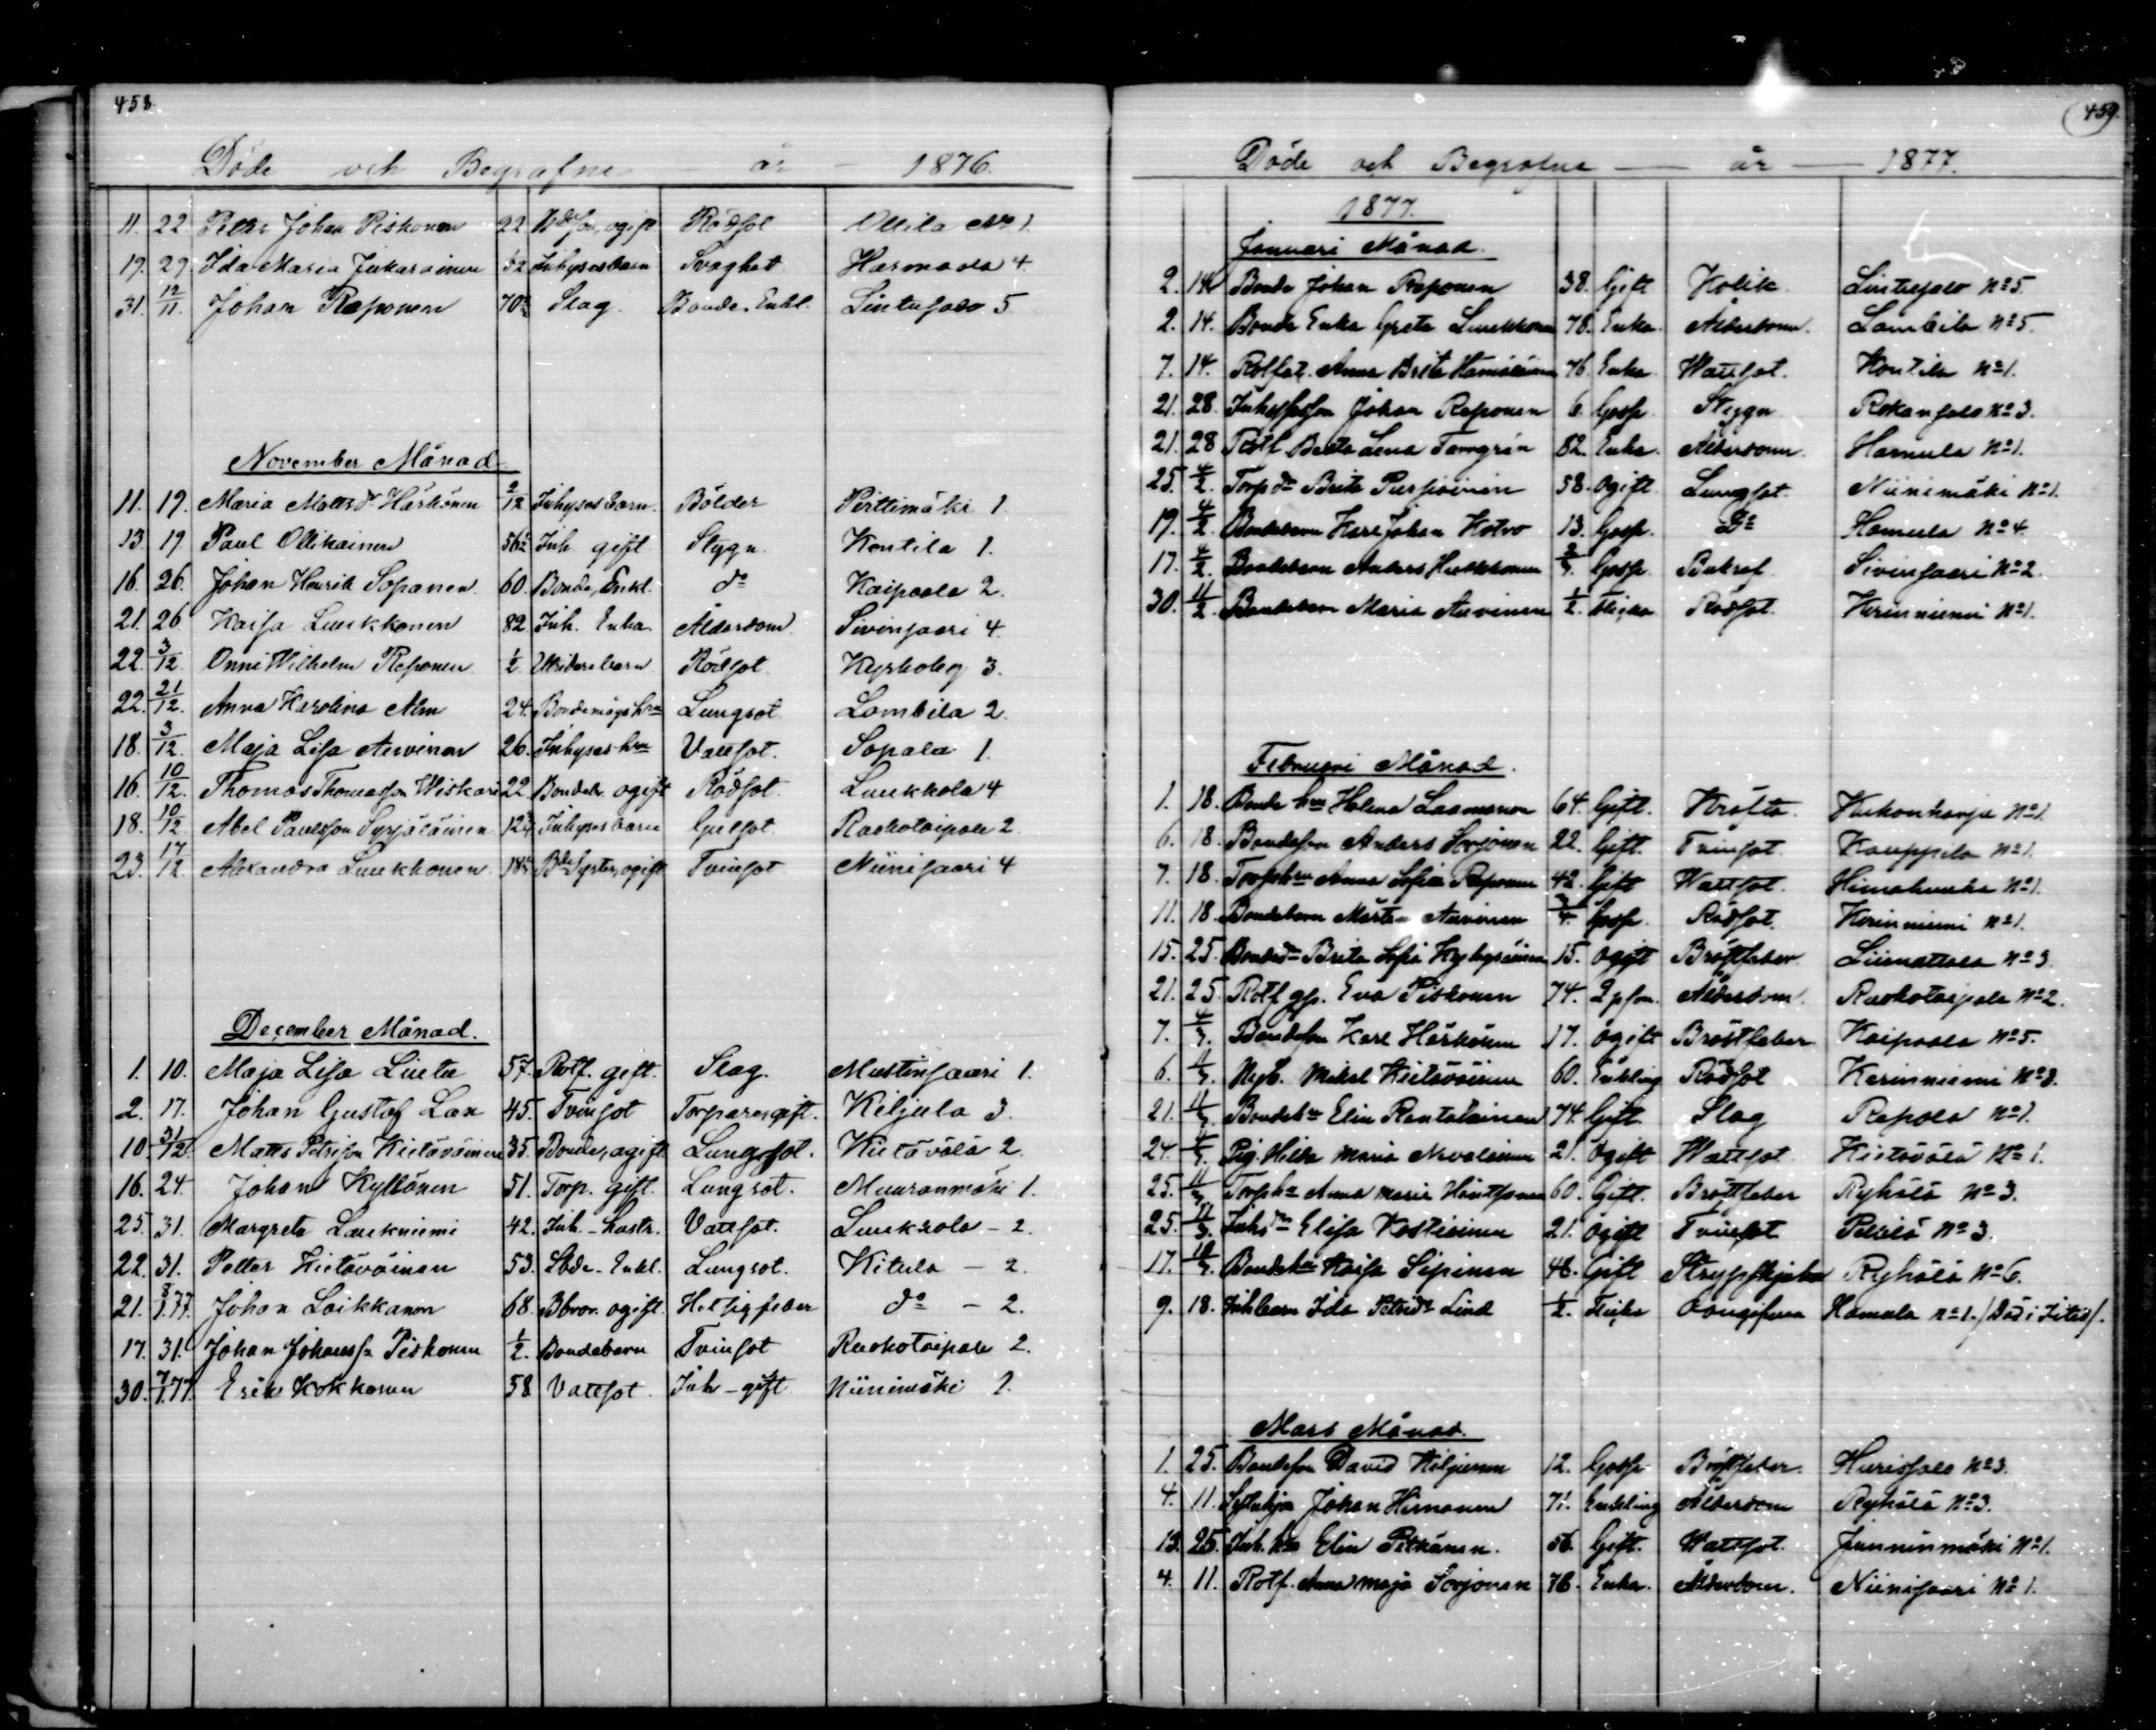 458.
Döde och Begrafne år - 1876.
11. 22. Petter Johan Piskonen 22 Bdeson, ogift Rödsot Ollila No 1
19. 29. Ida Maria Jukarainen Inhysesbarn Svaghet Harmaala 4.
31. 12/11. Johan Reponen 70 Slag. Bonde. Enkl. Lintusalo 5
November Månad
11. 19. Maria Mattsdr Härkönen 2/12 Inhysesbarn. Bölder Pirttimäki 1.
13. 19 Paul Ollikainen 56 Inh. gift Stygn. Kontila 1.
16. 26. Johan Henrik Sopanen. 60. Bonde, Enkl. do Kaipaala 2.
21. 26 Kaisa Luukkonen 82 Inh. Enka. Ålderdom. Sivinsaari 4.
22. 3/12. Onni Wilhelm Reponen. 1/2. barn Rödsot. Kyrkoby 3.
22. 21/12. Anna Karolina Alm 24. Bondemågs hru Lungsot. Lambila 2.
18. 3/12. Maja Lisa Auvinen 26. Inhyses-hru Vattsot. Sopala 1.
16. 10/12. Thomas Thomasson Wiskari 22 Bondeb. ogift Rödsot. Luukkola 4
18. 10/12. Abel Paulsson Syrjäläinen. 12 Inhysesbarn Gulsot. Raakotaipale 2.
23. 17/12. Alexandra Luukkonen. 18 Bdesyster, ogift Tvinsot Niinisaari 4
December Månad.
1. 10. Maja Lisa Liuttu 57. Rotf. gift. Slag. Mustinsaari 1.
2. 17. Johan Gustaf Lax 45. Tvinsot Torpare, gift. Kiljula 3.
10. 31/12. Matts Petrisson Kietäväinen 35. Bonde, ogift Lungsot. Kietävälä 2.
16. 24. Johan Kyllönen 51. Torp. gift. Lungsot. Muuranmäki 1.
25. 31. Margreta Laukniemi 42. Inh. - Vattsot. Luukkola - 2.
22. 31. Petter Kietäväinen 53. Enkl. Lungsot. Kitula - 2.
21. 1.77. Johan Laikkanen 68. Bbror. ogift. Hetsigfeber do - 2.
17. 31. Johan Johanss: Piskonen 1/2. Bondebarn Tvinsot Raakotaipale 2.
30. 7/1.77. Erik Kokkonen 58 Vattsot. Inh - gift Niinimäki 1.
459.
Döde och Begrafne — år — 1877.
1877.
Januari Månad.
2. 14. Bonde Johan Reponen 38. Gift Kolik. Lintusalo No 5.
2. 14. Bonde Enka Greta Luukkonen 78. Enka. Ålderdom. Lambila No 5.
7. 14. Rotfat. Anna Brita Hämäläinen 76. Enka Wattsot. Kontila No 1.
21. 28. Inhysesson Johan Reponen 6. Goss. Stygn Rokansalo No 3.
21. 28 Rotf Brita Lena Tamgrén 82. Enka. Ålderdom. Hamula No 1.
25. 4/2. Torp dr Brita Purjoinen 58. Ogift. Lungsot. Niinimäki No 1.
19. 4/2. Bondebarn Karl Johan Kotro 13. Goss. Do Hamula No 4.
17. 4/2. Bondebarn Anders Hukkonen Goss. Sivinsaari No 2.
30. 11/2. Bondebarn Maria Auvinen 1/2. Flicka Rödsot. Kerinniemi No 1.
Februari Månad.
1. 18. Bonde hru Helena Laamanen 64. Gift. Kräfta. Kukonharja No 1.
6. 18. Bondeson Anders Sorjonen 22. Gift. Tvinsot. Kauppila No 1.
7. 18. Torphru Anna Sofia Reponen 42. Gift Wattsot. Himahuuha No 1.
11. 18. Bondebarn Mårten Auvinen 3/4. Goss. Rödsot. Kerinniemi No 1.
15. 25. Bondedr Brita Sofia 15. Ogift Bröstfeber Liimattala No 3.
21. 25. Rotf gs. Eva Piskonen 74. Ålderdom. Raakotaipale No 2.
7. 4/3. Bondeson Karl Härkönen 17. Ogift Bröstfeber Kaipaala No 5.
6. 11/3. Nyb. Mikal Kietäväinen 60. Enkling Rödsot Kerinniemi No 3.
21. 11/3. Bondehu Elin Rantalainen 74. Gift. Slag Repola No 1.
24. 11/3. Pig. Hilda Maria 21. Ogift Wattsot. Kietävälä No 1.
25. 11/3. Torphu Anna Maria Hänttönen 60. Gift. Bröstfeber Ryhälä No 3.
25. 11/3. Inhdr Elisa Kostiainen 21. Ogift Tvinsot Pellilä No 3.
17. 18/3. Bondehu Kaisa Sipinen 48. Gift Strypsjuka Ryhälä No 6.
9. 18. Inhbarn Ida Petridr Lind 1/2. Flicka Oangifven Hamula No 1.
Mars Månad.
1. 25. Bondeson David Kiljunen 12. Goss Bröstfeber. Hurissalo No 3.
4. 11. Johan Hirvonen 71. Enkling Ålderdom Ryhälä No 3.
13. 25. Inh. hu Elin Pitkänen. 56. Gift. Wattsot. Junninmäki No 1.
4. 11. Rotf. Anna Maja Sorjonen 76. Enka. Ålderdom. Niinisaari No 1.